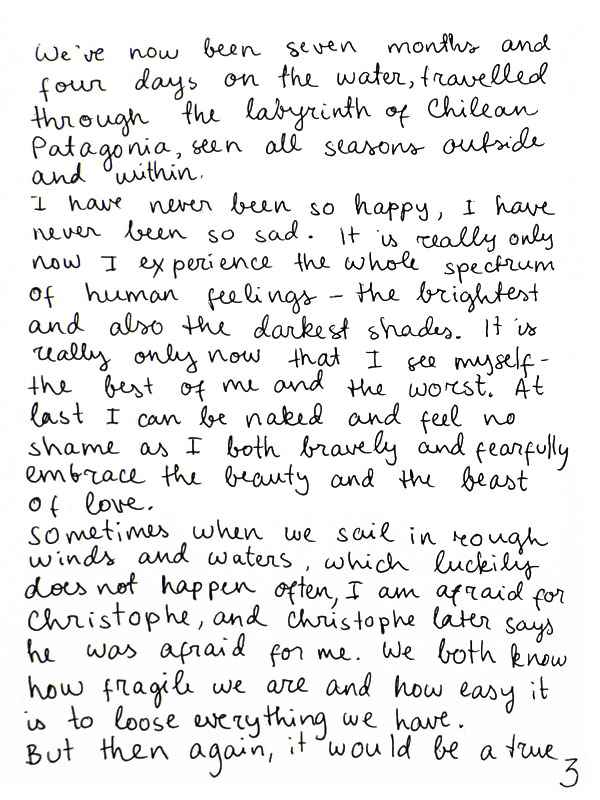 We've now been seven months and
four days on the water, travelled
through the labyrinth of Chilean
Patagonia, seen all seasons outside
and within.
I have never been so happy, I have
never been so sad. It is really only
now I experience the whole spectrum
of human feelings – the brightest
and also the darkest shades. It is
really only now that I see myself –
the best of me and the worst. At
last I can be naked and feel no
shame as I both bravely and fearfully
embrace the beauty and the beast
of love.
Sometimes when we sail in rough
winds and waters, which luckily
does not happen often, I am afraid for
Christophe, and Christophe later says
he was afraid for me. We both know
how fragile we are and how easy it
is to loose everything we have.
But then again, it would be a true
3